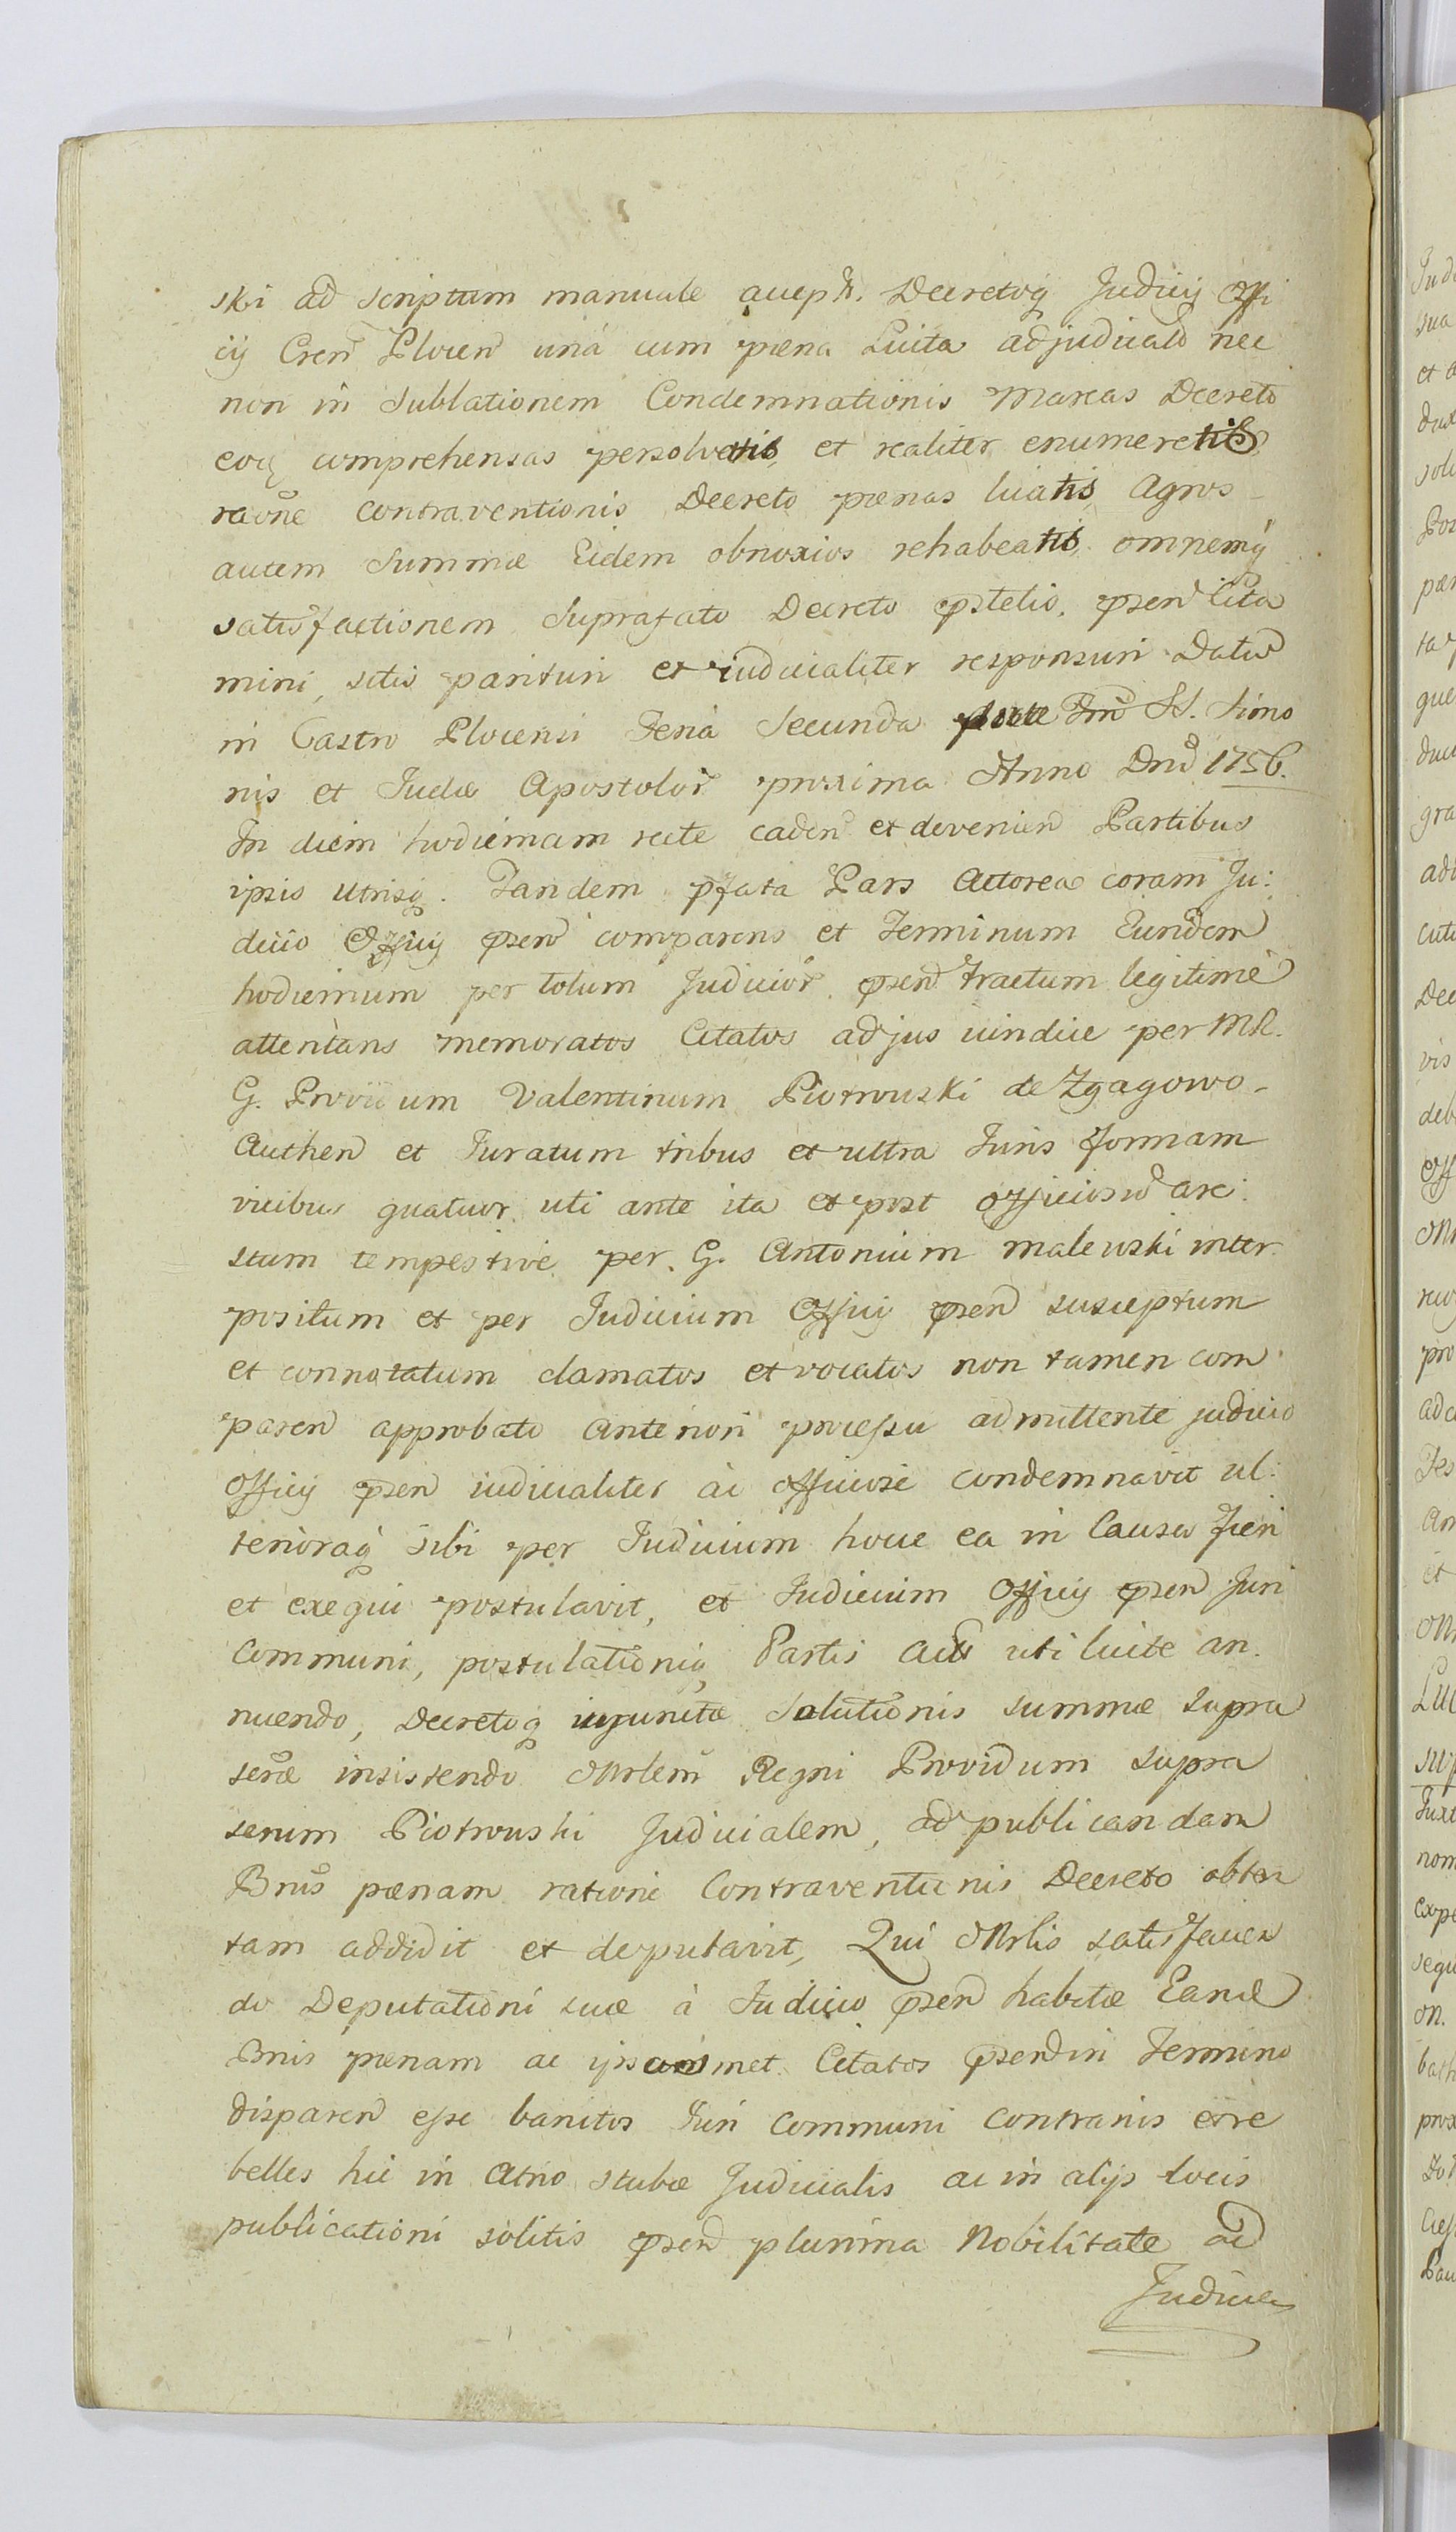 ski ad scriptum manuale accept. Decretoq Judicij Offi
cij Cren Plocen una cum pæna Luita adjudicato nec
non in Sublationem Condemnationis Marcas Decreto
eoq comprehensas persolvatis, et realiter enumeretis
raone contraventionis Decreto pænas luatis, Agros
autem Summæ Eidem obnoxios rehabeatis, omnemq
satisfactionem Suprafato Decreto pstetis. psen Cita
mini, sitis parituri et iudicialiter responsuri Datu
in Castro Plocensi Feria Secunda SS. Simo
nis et Judæ Apostolor proxima Anno Dni 1756.
In diem hodiernam recte caden et devenien Partibus
ipsis utrisq. Tandem pfata Pars Actorea coram Ju:
dicio Officij psen comparens et Terminum Eundem
hodiernum per totum Judicior psen tractum legitime
attentans memoratos Citatos ad jus uindice per MR.
G. Providum Valentinum Piotrowski de Zgagowo
Authen et Juratum tribus et ultra Juris formam
vicibus quatuor uti ante ita et post officiosu are:
stum tempestive per G. Antonium Malewski inter
positum et per Judicium Officij psen susceptum
et connotatum clamatos et vocatos non tamen com
paren approbato anteriori processu admittente judicio
Officij psen iudicialiter ac officiose condemnavit ul:
terioraq sibi per Judicium hocce ea in Causa fieri
et exequi postulavit, et Judicium Officij psen Juri
Communi, postulationiq Partis Act uti licite an
nuendo, Decretoq injunctæ Solutionis summæ supra
seræ insistendo Mrlem Regni Providum supra
serium Piotrowski Judicialem, ad publicandam
Bnis pænam ratione Contraventionis Decreto obten
tam addidit et deputavit, Qui Mrlis satisfacien
do Deputationi suæ à Judicio psen habitæ Eand
Bnis pænam ac ipsosmet Citatos psen in Termino
disparen esse banitos Juri Communi contrarios et re
belles hic in Atrio stubæ Judicialis ac in alijs locis
publicationi solitis psen plurima Nobilitate ad
Judicia